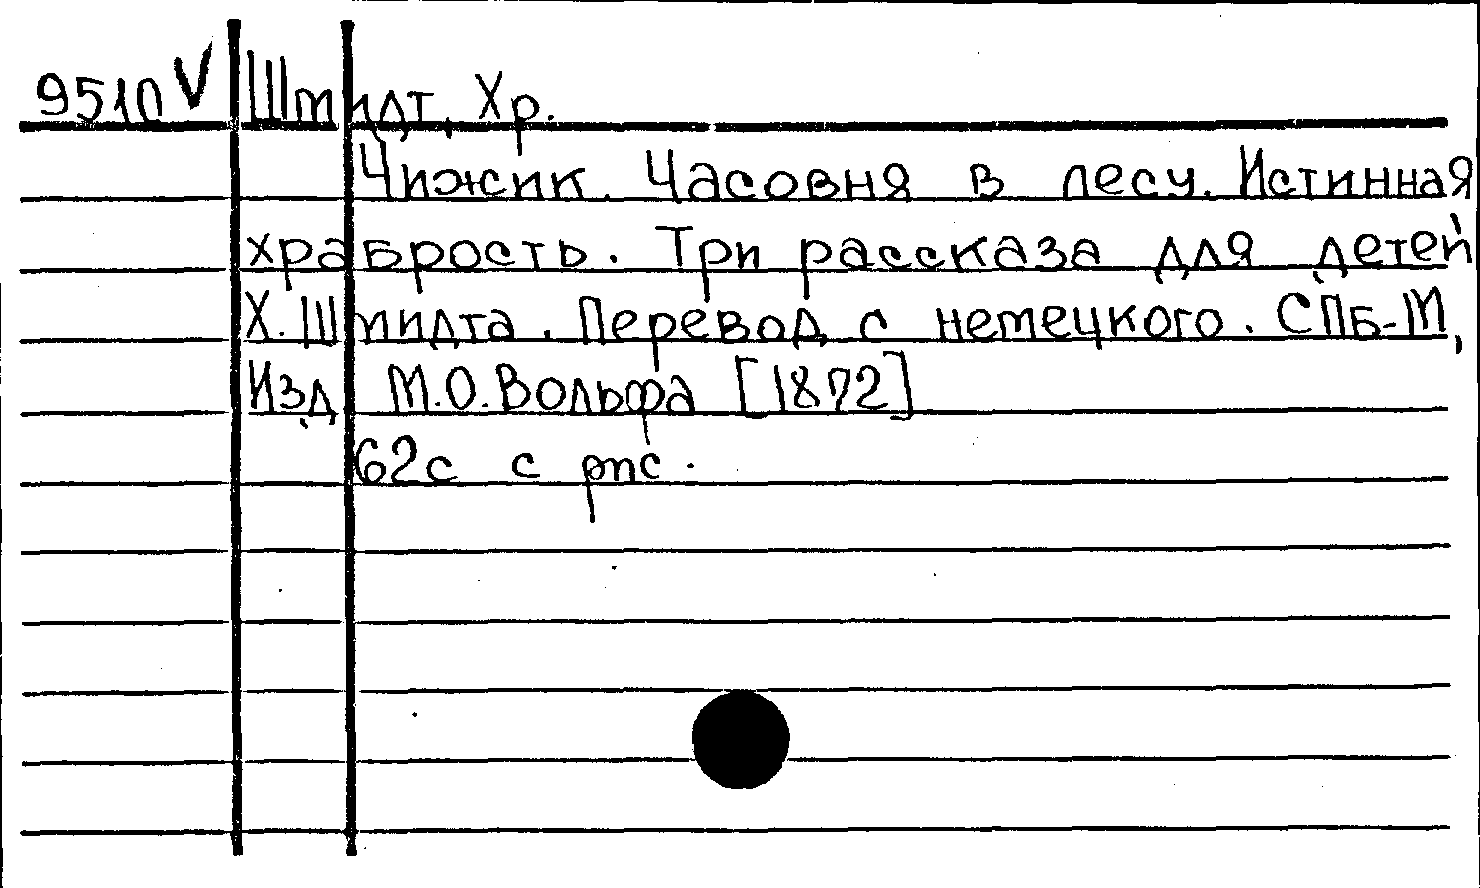 9510 V Шмидт, Хр.
Чижик. Часовня в лесу. Истинная
храбрость. Три рассказа для детей
Х. Шмидта. Перевод с немецкого. СПб-М,
Изд М.О. Вольфа [1872]
62с с рис.